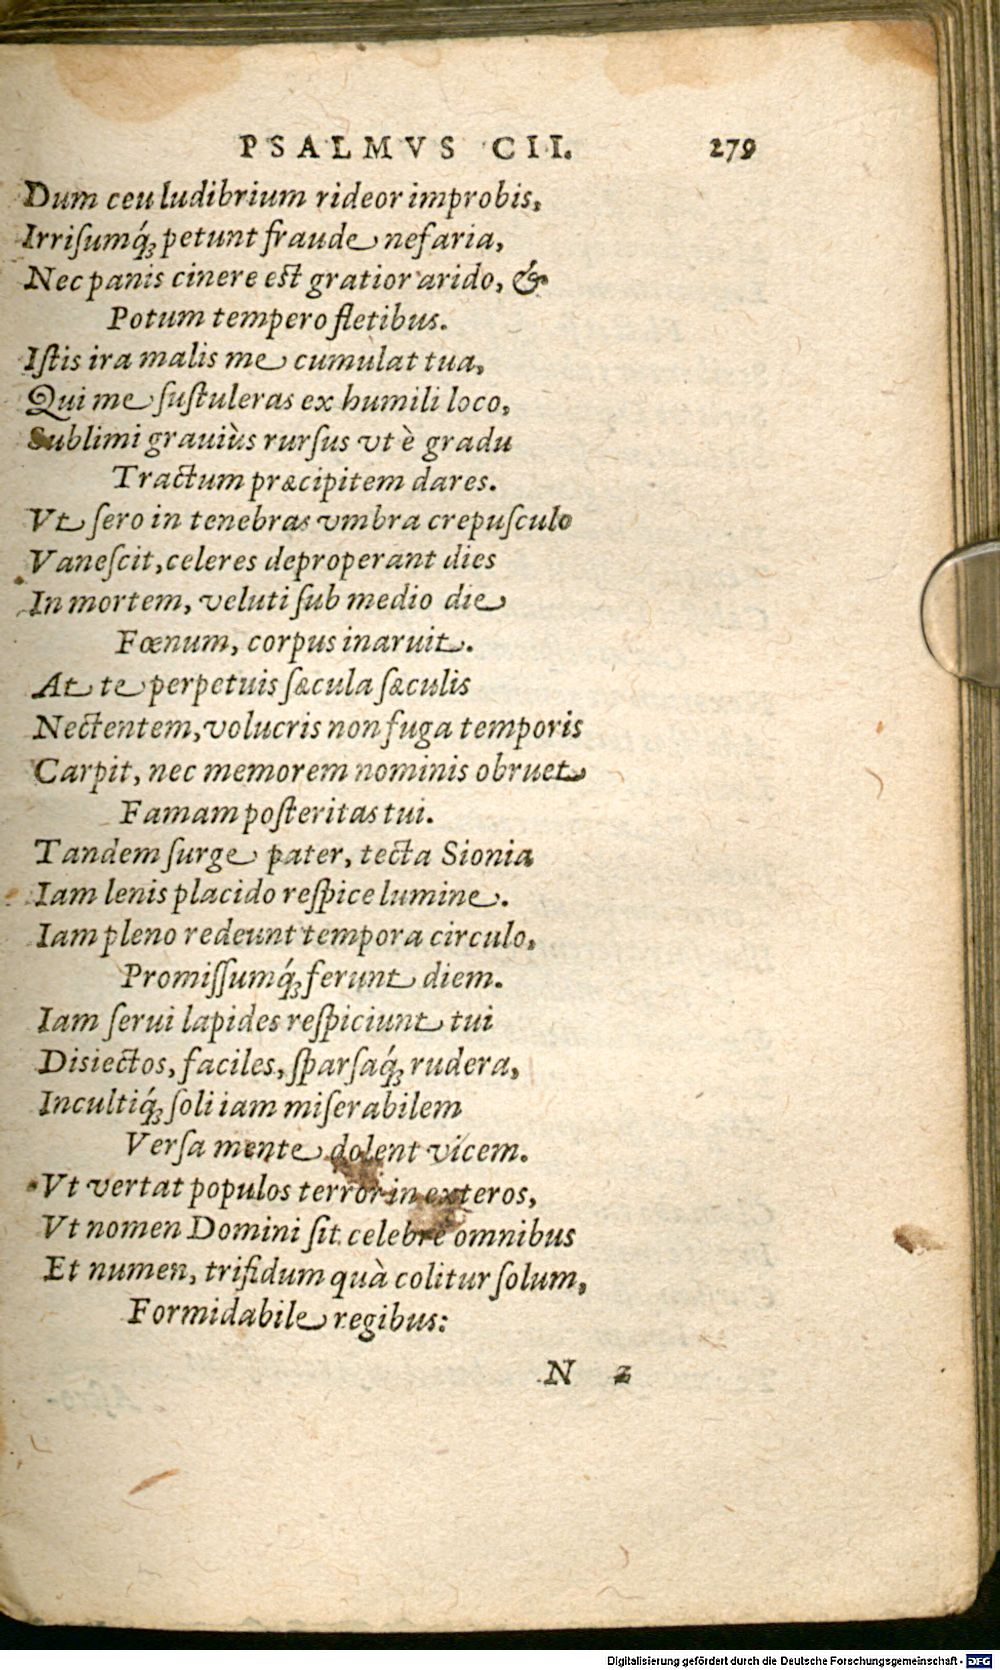 PSALMVS CII. 279
Dum ceu ludibrium rideor improbis,
Irriſumq́ꝫ petunt fraude nefaria,
Nec panis cinere est gratior arido, &
Potum tempero fletibus.
Iſtis ira malis me cumulat tua,
Qui me ſuſtuleras ex humili loco,
Sublimi grauiùs rurſus vt è gradu
Tractum præcipitem dares.
Vt ſero in tenebras vmbra crepuſculo
Vaneſcit, celeres deproperant dies
In mortem, veluti ſub medio die
Fœnum, corpus inaruit.
At te perpetuis ſæcula ſæculis
Nectentem, volucris non fuga temporis
Carpit, nec memorem nominis obruet
Famam poſteritas tui.
Tandem ſurge pater, tecta Sionia
Iam lenis placido reſpice lumine.
Iam pleno redeunt tempora circulo,
Promiſſumq́ꝫ ferunt diem.
Iam ſerui lapides reſpiciunt tui
Disiectos, faciles, ſparſaq́ꝫ rudera,
Incultiq́ꝫ ſoli iam miſerabilem
Verſa mente dolent vicem.
Vt vertat populos terror in exteros,
Vt nomen Domini ſit celebre omnibus
Et numen, trifidum quà colitur ſolum,
Formidabile regibus:
N 2
Digitalisierung gefördert durch die Deutsche Forschungsgemeinschaft - DFG